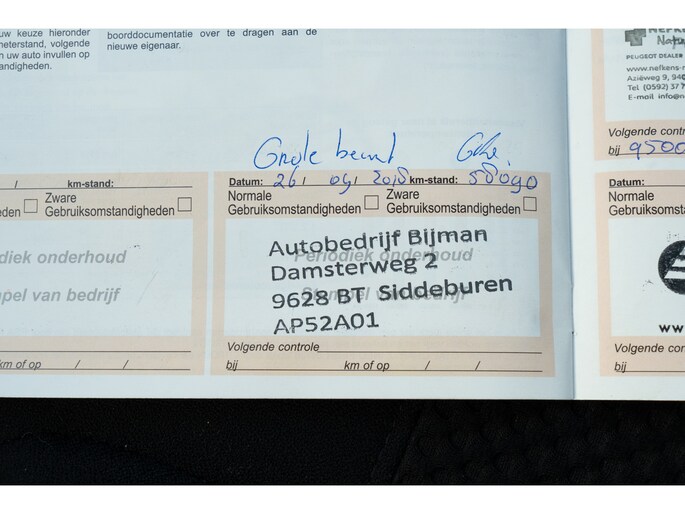 uw keuze hieronder
meterstand, volgende
n uw auto invullen op
tandigheden.
boorddocumentatie over te dragen aan de
nieuwe eigenaar.
PEUGEOT DEALER
www.nefkens-
Aziëweg 9, 940
Tel. (0592) 37 7
E-mail info@n
Volgende contr
bij 9500
Grote beurt
/ km-stand:
Zware
eden Gebruiksomstandigheden
diek onderhoud
mpel van bedrijf
km of op / /
Datum: 26 / 09 / 2018 km-stand: 58090
Normale Zware
Gebruiksomstandigheden Gebruiksomstandigheden
Periodiek onderhoud
Stempel van bedrijf
Autobedrijf Bijman
Damsterweg 2
9628 BT Siddeburen
AP52A01
Volgende controle
bij km of op / /
Datum:
Normale
Gebruiksomst
ww
Volgende cont
bij